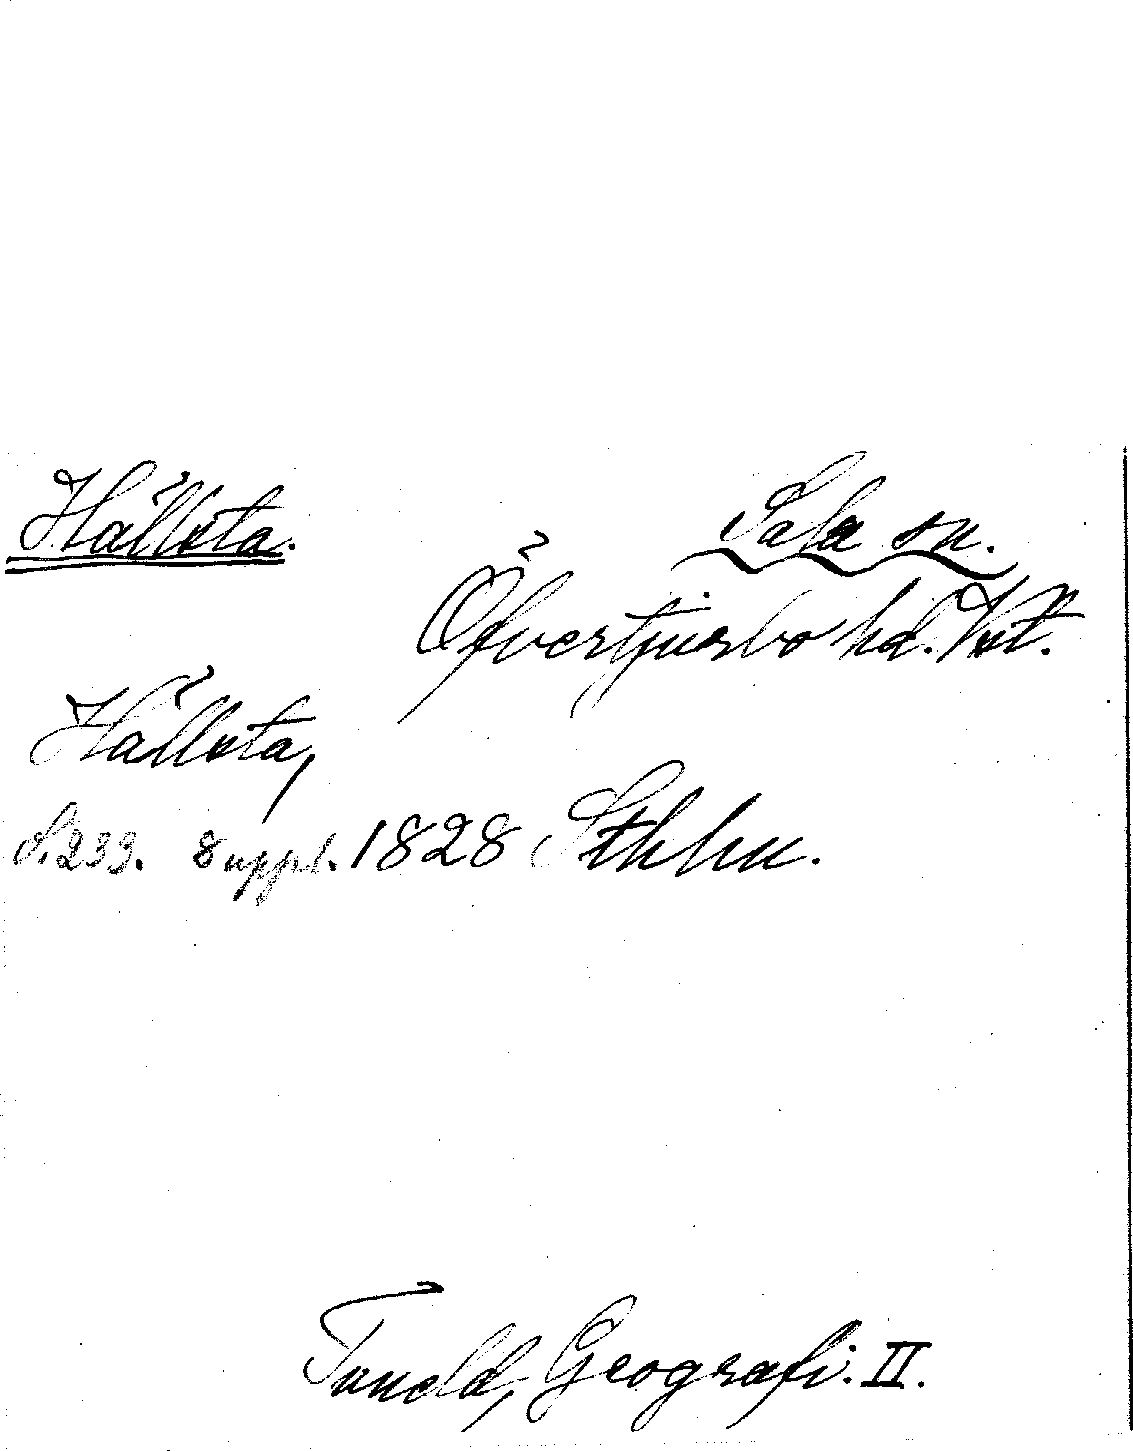 Hällsta.
Sala sn.
Öfvertjurbo hd. Vstm.
Hällsta,
S. 239. 8 uppl. 1828 Sthlm.
Tuneld, Geografi. II.